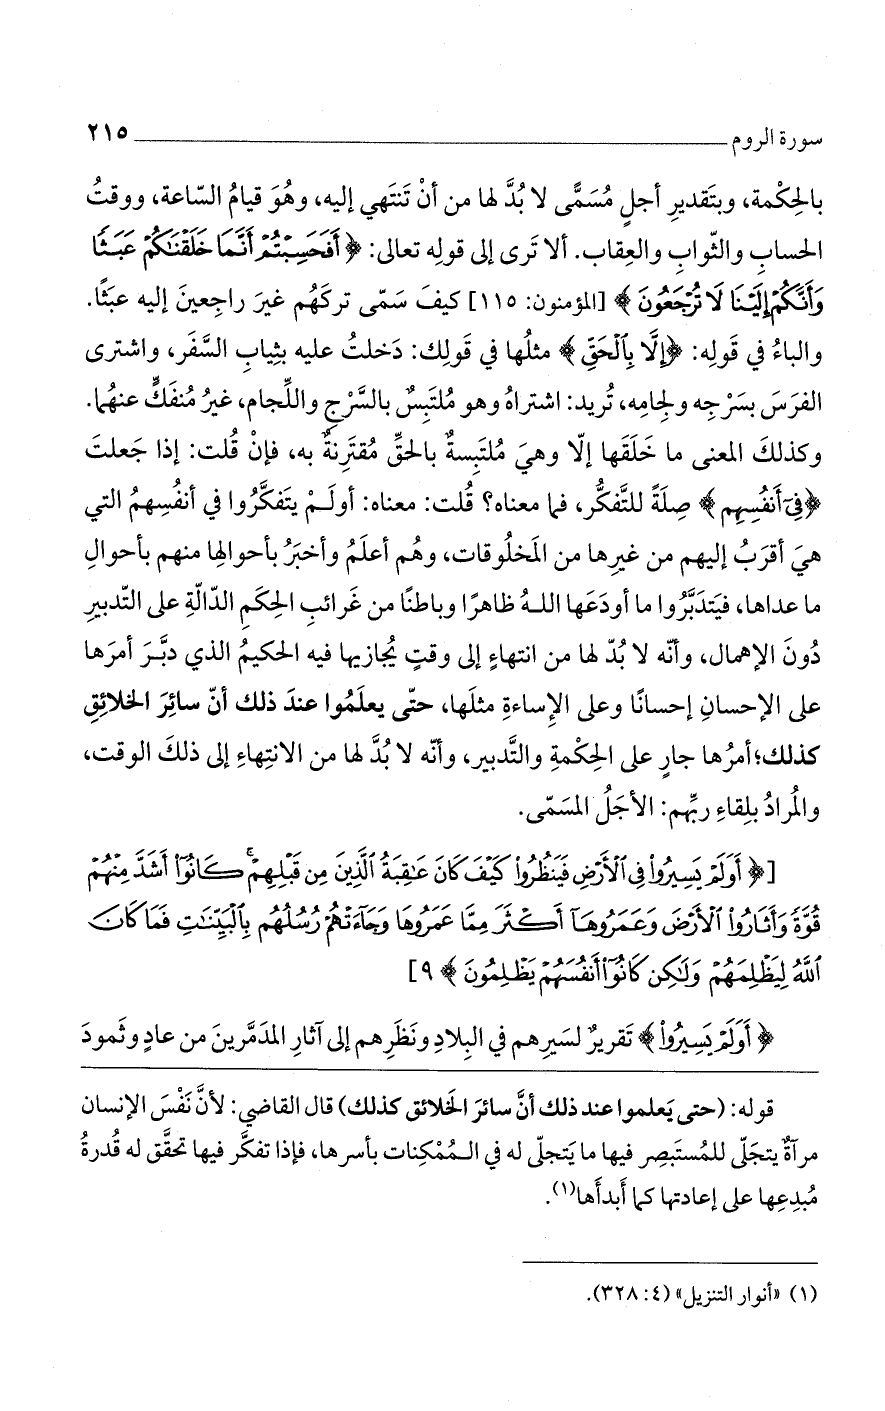 سورة الروم ٢١٥
بالحِكْمة، وبتَقديرِ أجلٍ مُسَمًّى لا بُدَّ لها من أنْ تَنتَهي إليه، وهُوَ قيامُ السّاعة، ووقتُ
الحسابِ والثّوابِ والعِقاب. ألا تَرى إلى قولِه تعالى: ﴿أَفَحَسِبْتُمْ أَنَّمَا خَلَقْنَٰكُمْ عَبَثًا
وَأَنَّكُمْ إِلَيْنَا لَا تُرْجَعُونَ﴾ [المؤمنون: ١١٥] كيفَ سَمّى تركَهُم غيرَ راجعينَ إليه عبَثًا.
والباءُ في قَولِه: ﴿إِلَّا بِٱلْحَقِّ﴾ مثلُها في قَولِك: دَخلتُ عليه بثِيابِ السَّفَر، واشترى
الفرَسَ بسَرْجِه ولجامِه، تُريد: اشتراهُ وهو مُلتَبِسٌ بالسَّرْجِ واللِّجام، غيرُ مُنفَكٍّ عنهُما.
وكذلكَ المعنى ما خَلَقَها إلّا وهيَ مُلتَبِسةٌ بالحقِّ مُقتَرِنةٌ به، فإنْ قُلت: إذا جَعلتَ
﴿فِىٓ أَنفُسِهِم﴾ صِلَةً للتَّفكُّر، فما معناه؟ قُلت: معناه: أولَـمْ يتَفكَّرُوا في أنفُسِهِمُ التي
هيَ أقرَبُ إليهم من غيرِها من المَخلُوقات، وهُم أعلَمُ وأخبَرُ بأحوالِها منهم بأحوالِ
ما عداها، فيَتدَبَّرُوا ما أودَعَها اللـهُ ظاهرًا وباطنًا من غَرائبِ الحِكَمِ الدّالّةِ على التّدبيرِ
دُونَ الإهمال، وأنّه لا بُدّ لها من انتهاءٍ إلى وقتٍ يُجازيها فيه الحكيمُ الذي دبَّـرَ أمرَها
على الإحسانِ إحسانًا وعلى الإساءةِ مثلَها، حتّى يعلَمُوا عندَ ذلك أنّ سائرَ الخلائقِ
كذلك؛ أمرُها جارٍ على الحِكْمةِ والتَّدبير، وأنّه لا بُدَّ لها من الانتِهاءِ إلى ذلكَ الوقت،
والمُرادُ بلِقاءِ ربِّهم: الأجَلُ المسَمّى.
[﴿أَوَلَمْ يَسِيرُوا۟ فِى ٱلْأَرْضِ فَيَنظُرُوا۟ كَيْفَ كَانَ عَٰقِبَةُ ٱلَّذِينَ مِن قَبْلِهِمْ ۚ كَانُوٓا۟ أَشَدَّ مِنْهُمْ
قُوَّةً وَأَثَارُوا۟ ٱلْأَرْضَ وَعَمَرُوهَآ أَكْـثَرَ مِمَّا عَمَرُوهَا وَجَآءَتْهُمْ رُسُلُهُم بِٱلْبَيِّنَٰتِ فَمَا كَانَ
ٱللَّهُ لِيَظْلِمَهُمْ وَلَٰكِن كَانُوٓا۟ أَنفُسَهُمْ يَظْلِمُونَ﴾ ٩]
﴿أَوَلَمْ يَسِيرُوا۟﴾ تَقريرٌ لسَيرِهم في البِلادِ ونَظَرِهم إلى آثارِ المدَمَّرينَ من عادٍ وثَمودَ
قوله: (حتى يَعلموا عند ذلك أنَّ سائرَ الخَلائق كذلك) قال القاضي: لأنَّ نَفْسَ الإنسان
مرآةٌ يتجَلّى للمُستَبصِر فيها ما يَتجلّى له في الـمُمْكِنات بأسرها، فإذا تفكَّر فيها تحقَّق له قُدرةُ
مُبدِعِها على إعادتها كما أَبدأَها(١).
(١) «أنوار التنزيل» (٤: ٣٢٨).